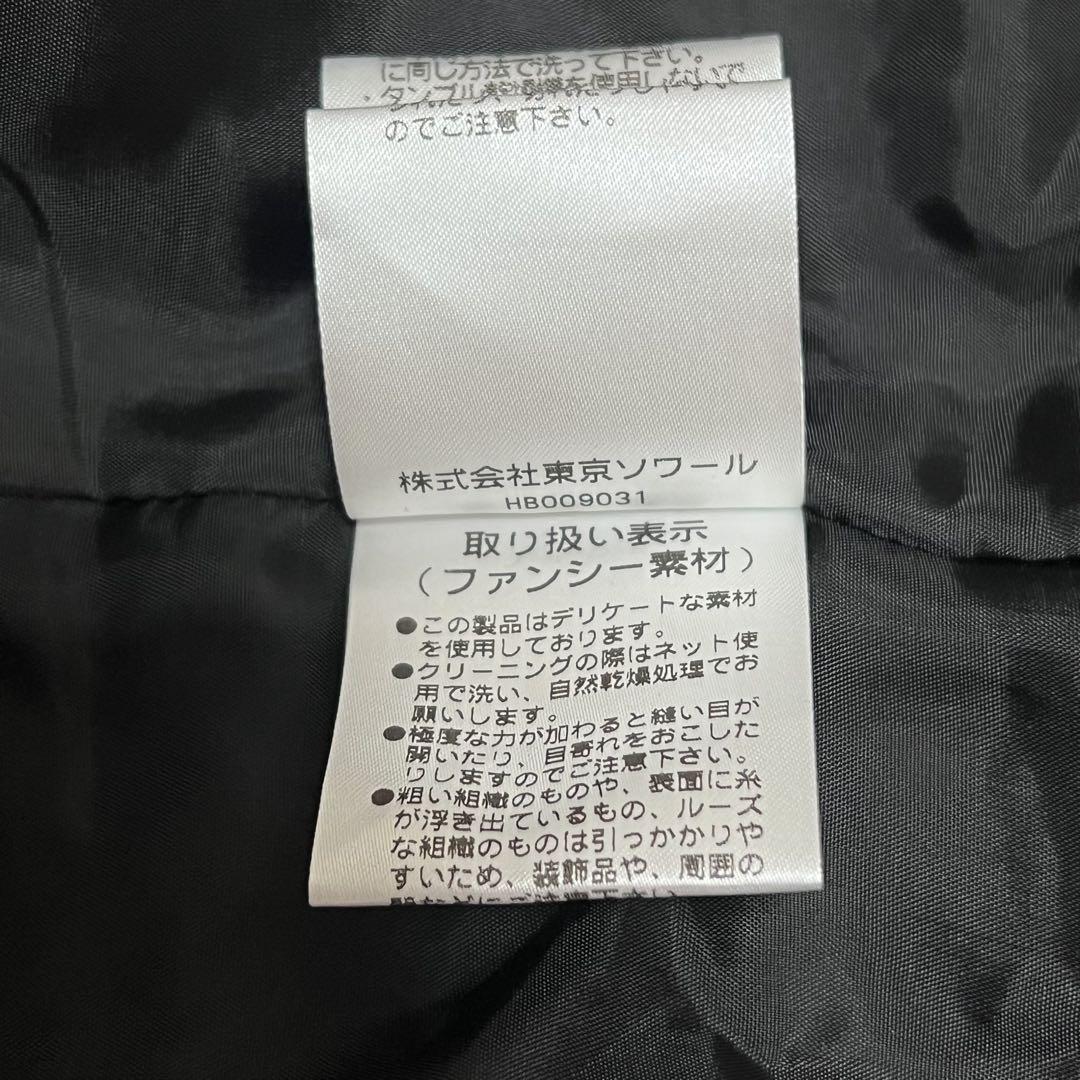 に同じ方法で洗って下さい。
・タンブル
を使用しないで
のでご注意下さい。
株式会社東京ソワール
HB009031
取り扱い表示
(ファンシー素材)
●この製品はデリケートな素材
を使用しております。
●クリーニングの際はネット使
用で洗い、自然乾燥処理でお
願いします。
●極度な力が加わると縫い目が
開いたり、目寄れをおこした
りしますのでご注意下さい。
●粗い組織のものや、表面に糸
が浮き出ているもの、ルーズ
な組織のものは引っかかりや
すいため、装飾品や、周囲の